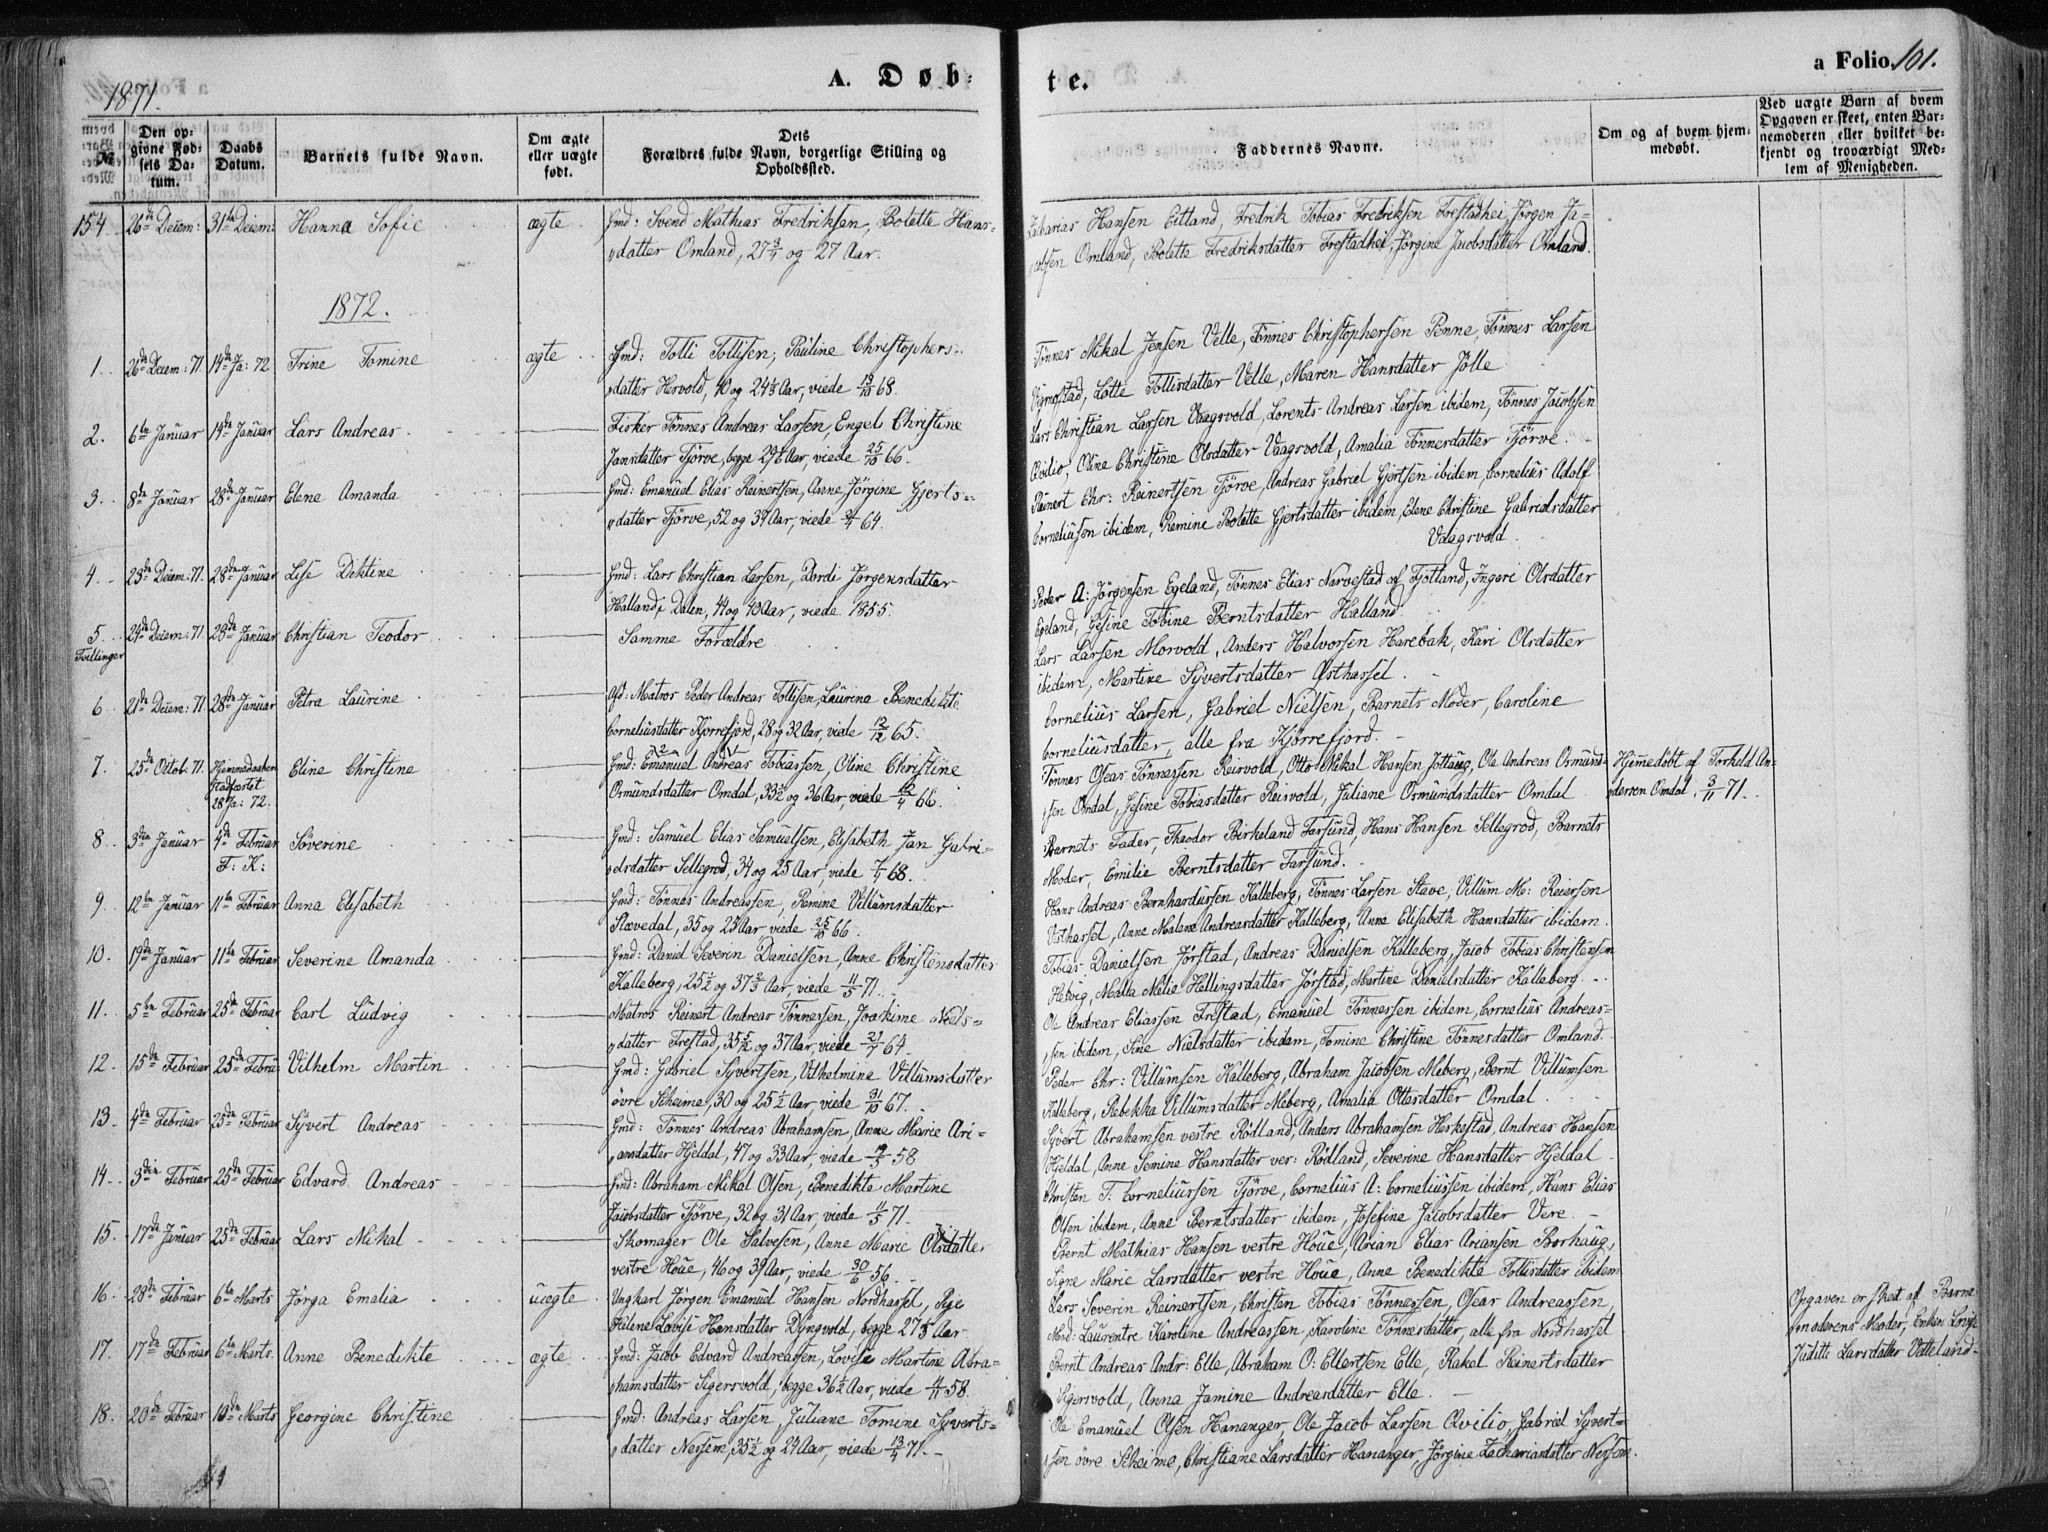 1871.
A. Døb-
te.
a Folio 101.
№
Den op-
givne Fød-
sels Da-
tum.
Daabs
Datum.
Barnets fulde Navn.
Om ægte
eller uægte
født.
Dets
Forældres fulde Navn, borgerlige Stilling og
Opholdssted.
Faddernes Navne.
Om og af hvem hjem-
medøbt.
Ved uægte Børn af hvem
Opgaven er skeet, enten Bar-
nemoderen eller hvilket be-
kjendt og troværdigt Med-
lem af Menigheden.
154. 26de Decem: 31te Decem: Hanna Sofie ægte Gmd: Svend Mathias Fredriksen, Bolette Hans-
datter Omland, 27 3/4 og 27 Aar.
Zacharias Hansen Eitland, Fredrik Tobias Fredriksen Frestadhei, Jörgen Ja-
cobsen Omland, Bolette Fredriksdatter Frestadhei, Jörgine Jacobsdatter Omland.
1872.
1. 26de Decem: 71 14de Ja: 72 Trine Tomine ægte Gmd: Tolli Tollisen, Pauline Christophers-
datter Hervold, 40 og 24 Aar, viede 68.
Tönnes Mikal Jensen Velle, Tönnes Christophersen Penne, Tönnes Larsen
Lotte Tollisdatter Velle, Maren Hansdatter Jölle
2. 6te Januar 14de Januar Lars Andreas Fisker Tönnes Andreas Larsen, Engel Christine
Jansdatter Tjörve, begge 29 Aar, viede 25/10 66.
Lars Christian Larsen Vaagsvold, Lorents Andreas Larsen ibidem, Tönnes Jacobsen
Qvilio, Oline Christine Olsdatter Vaagsvold, Amalia Tönnesdatter Tjörve.
3. 8de Januar 28de Januar Elene Amanda Gmd: Emanuel Elias Reinertsen, Anne Jörgine Gjerts-
datter Tjörve, 52 og 39 Aar, viede 64.
Reinert Chr: Reinertsen Tjörve, Andreas Gabriel Gjertsen ibidem, Cornelius Adolf
Corneliusen ibidem, Remine Bolette Gjertsdatter ibidem, Elene Christine Gabrielsdatter
Vaagsvold.
4. 23de Decem: 71. 28de Januar Lise Diktine Gmd: Lars Christian Larsen, Dordi Jörgensdatter
Halland, Dalen, 44 og 40 Aar, viede 1855.
Peder A: Jörgensen Egeland, Tönnes Elias Narvestad af Fjotland, Ingeri Olsdatter
Egeland, Gesine Tobine Berntsdatter Halland.
5. Tvillinger 24de Decem: 71 28de Januar Christian Teodor Samme Forældre
Lars Larsen Morvold, Anders Halvorsen Harebak, Kari Olsdatter
ibidem, Martine Syvertsdatter Østhassel.
6. 21de Decem: 71 28de Januar Petra Laurine Afsk: Matros Peder Andreas Tollisen, Laurina Benedikte
Corneliusdatter Kjorrefjord, 28 og 32 Aar, viede 12/12 65.
Cornelius Larsen, Gabriel Nielsen, Barnets Moder, Caroline
Corneliusdatter, alle fra Kjörrefjord.
7. 25de Octob: 71. Hjemmedaaben
stadfæstet
28 Ja: 72. Eline Christine Gmd: Emanuel Andreas Tobiassen, Oline Christine
Osmundsdatter Omdal, 33 1/2 og 36 Aar, viede 12/4 66.
Tönnes Oscar Tönnessen Reirvold, Otto Mikal Hansen Jöttaug, Ole Andreas Osmund-
sen Omdal, Gesine Tobiasdatter Reirvold, Juliane Osmundsdatter Omdal
Hjemmedöbt af Torkild An-
dersen Omdal, 3/11 71.
8. 3die Januar 4de Februar
F: K: Söverine Gmd: Samuel Elias Samuelsen, Elisabeth Jan Gabri-
elsdatter Sellegrod, 34 og 25 Aar, viede 68.
Barnets Fader, Theodor Birkeland Farsund, Hans Hansen Sellegrod, Barnets
Moder, Emilie Berntsdatter Farsund.
9. 12te Januar 11te Februar Anna Elisabeth Gmd: Tönnes Andreassen, Remine Villumsdatter
Stavedal, 35 og 23 Aar, viede 25/10 66.
Hans Andreas Bernhardussen Kalleberg, Tönnes Larsen Stave, Villum M: Reiersen
Vesthassel, Anne Malene Andreasdatter Kalleberg, Anna Elisabeth Hansdatter ibidem.
10. 19de Januar 11te Februar Severine Amanda Gmd: Daniel Severin Danielsen, Anne Christensdatter
Kalleberg, 25 1/2 og 37 2/3 Aar, viede 11/5 71.
Tobias Danielsen Jörstad, Andreas Danielsen Kalleberg, Jacob Tobias Christensen
Hebvig, Malla Melia Hellingsdatter Jörstad, Martine Danielsdatter Kalleberg.
11. 5te Februar 25de Februar Carl Ludvig Matros Reinert Andreas Tönnessen, Joakime Niels-
datter Frestad, 35 5/12 og 37 Aar, viede 64.
Ole Andreas Eliassen Frestad, Emanuel Tönnessen ibidem, Cornelius Andreas-
sen ibidem, Sine Nielsdatter ibidem, Tomine Christine Tönnesdatter Omland.
12. 15de Februar 25de Februar Vilhelm Martin Gmd: Gabriel Syvertsen, Vilhelmine Villumsdatter
övre Skeime, 30 og 25 1/2 Aar, viede 31/10 67.
Peder Chr: Villumsen Kalleberg, Abraham Jacobsen Meberg, Bernt Villumsen
Kalleberg, Rebekka Villumsdatter Meberg, Amalia Ottersdatter Omdal.
13. 4de Februar 25de Februar Syvert Andreas Gmd: Tönnes Andreas Abrahamsen, Anne Marie Ari-
ansdatter Hjeldal, 47 og 33 Aar, viede 58
Syvert Abrahamsen vestre Rödland, Anders Abrahamsen Herkestad, Andreas Hansen
Hjeldal, Anne Semine Hansdatter ves: Rödland, Severine Hansdatter Hjeldal
14. 3die Februar 25de Februar Edvard Andreas Gmd: Abraham Mikal Olsen, Benedikte Martine
Jacobsdatter Tjörve, 32 og 31 Aar, viede 11/5 71.
Christen T: Corneliussen Tjörve, Cornelius A: Corneliussen ibidem, Hans Elias
Olsen ibidem, Anne Berntsdatter ibidem, Josefine Jacobsdatter Vere.
15. 17de Januar 25de Februar Lars Mikal Skomager Ole Salvesen, Anne Marie Olsdatter
vestre Houe, 46 og 39 Aar, viede 30/6 56.
Bernt Mathias Hansen vestre Houe, Arian Elias Ariansen Borhaug,
Signe Marie Larsdatter vestre Houe, Anne Benedikte Tollisdatter ibidem
16. 28de Februar 6te Marts Jörga Emalia uægte Ungkarl Jörgen Emanuel Hansen Nordhassel, Pige
Helene Lovise Hansdatter Dyngvold, begge 27 Aar
Lars Severin Reinertsen, Christen Tobias Tönnessen, Oscar Andreassen,
Mod: Laurentse Karoline Andreassen, Karoline Tönnesdatter, alle fra Nordhassel
Opgaven er skeet af Barne-
moderens Moder, Enken Lovise
Juditte Larsdatter Vetteland.
17. 17de Februar 6te Marts. Anne Benedikte ægte Gmd: Jacob Edvard Andreassen, Lovise Martine Abra-
hamsdatter Sigersvold, begge 36 1/2 Aar, viede 4/11 58.
Bernt Andreas Andr: Elle, Abraham O: Ellertsen Elle, Rakel Reinertsdatter
Sigersvold, Anna Jamine Andreasdatter Elle.
18. 20de Februar 10de Marts Georgine Christine Gmd: Andreas Larsen, Juliane Tomine Syverts-
datter Nessem, 35 1/2 og 24 Aar, viede 13/4 71.
Ole Emanuel Olsen Hananger, Ole Jacob Larsen Qvilio, Gabriel Syvert-
sen övre Skeime, Christiane Larsdatter Hananger, Jörgine Zachariasdatter Nessem.